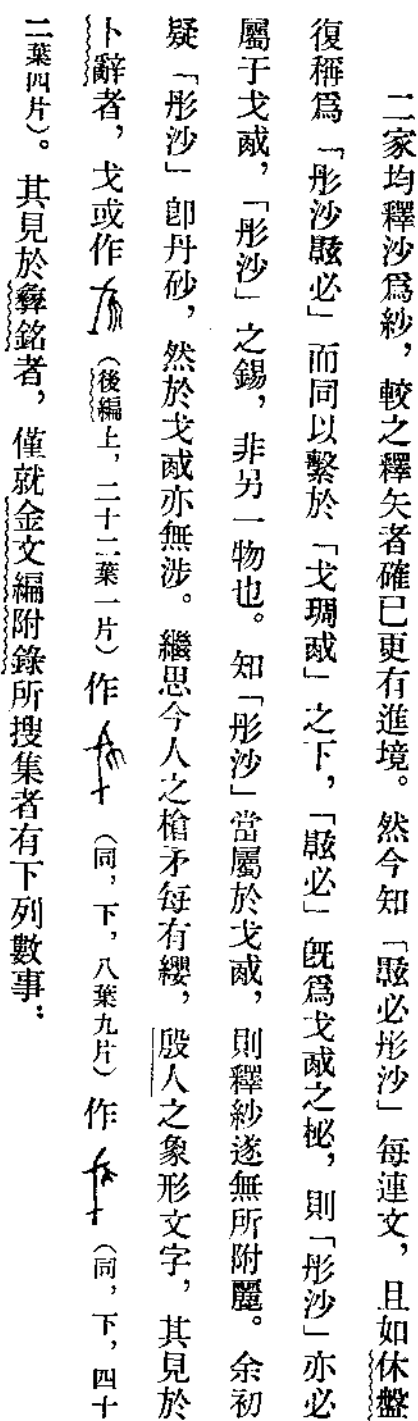 二家均釋沙爲紗，較之釋矢者確已更有進境。然今知「䵎必彤沙」每連文，且如休盤
復稱爲「彤沙䵎必」而同以繫於「戈琱㦸」之下，「䵎必」旣爲戈㦸之柲，則「彤沙」亦必
屬于戈㦸，「彤沙」之錫，非另一物也。知「彤沙」當屬於戈㦸，則釋紗遂無所附麗。余初
疑「彤沙」卽丹砂，然於戈㦸亦無涉。繼思今人之槍矛每有纓，殷人之象形文字，其見於
卜辭者，戈或作（後編上，二十二葉一片）作（同，下，八葉九片）作（同，下，四十
二葉四片）。其見於彝銘者，僅就金文編附錄所搜集者有下列數事：